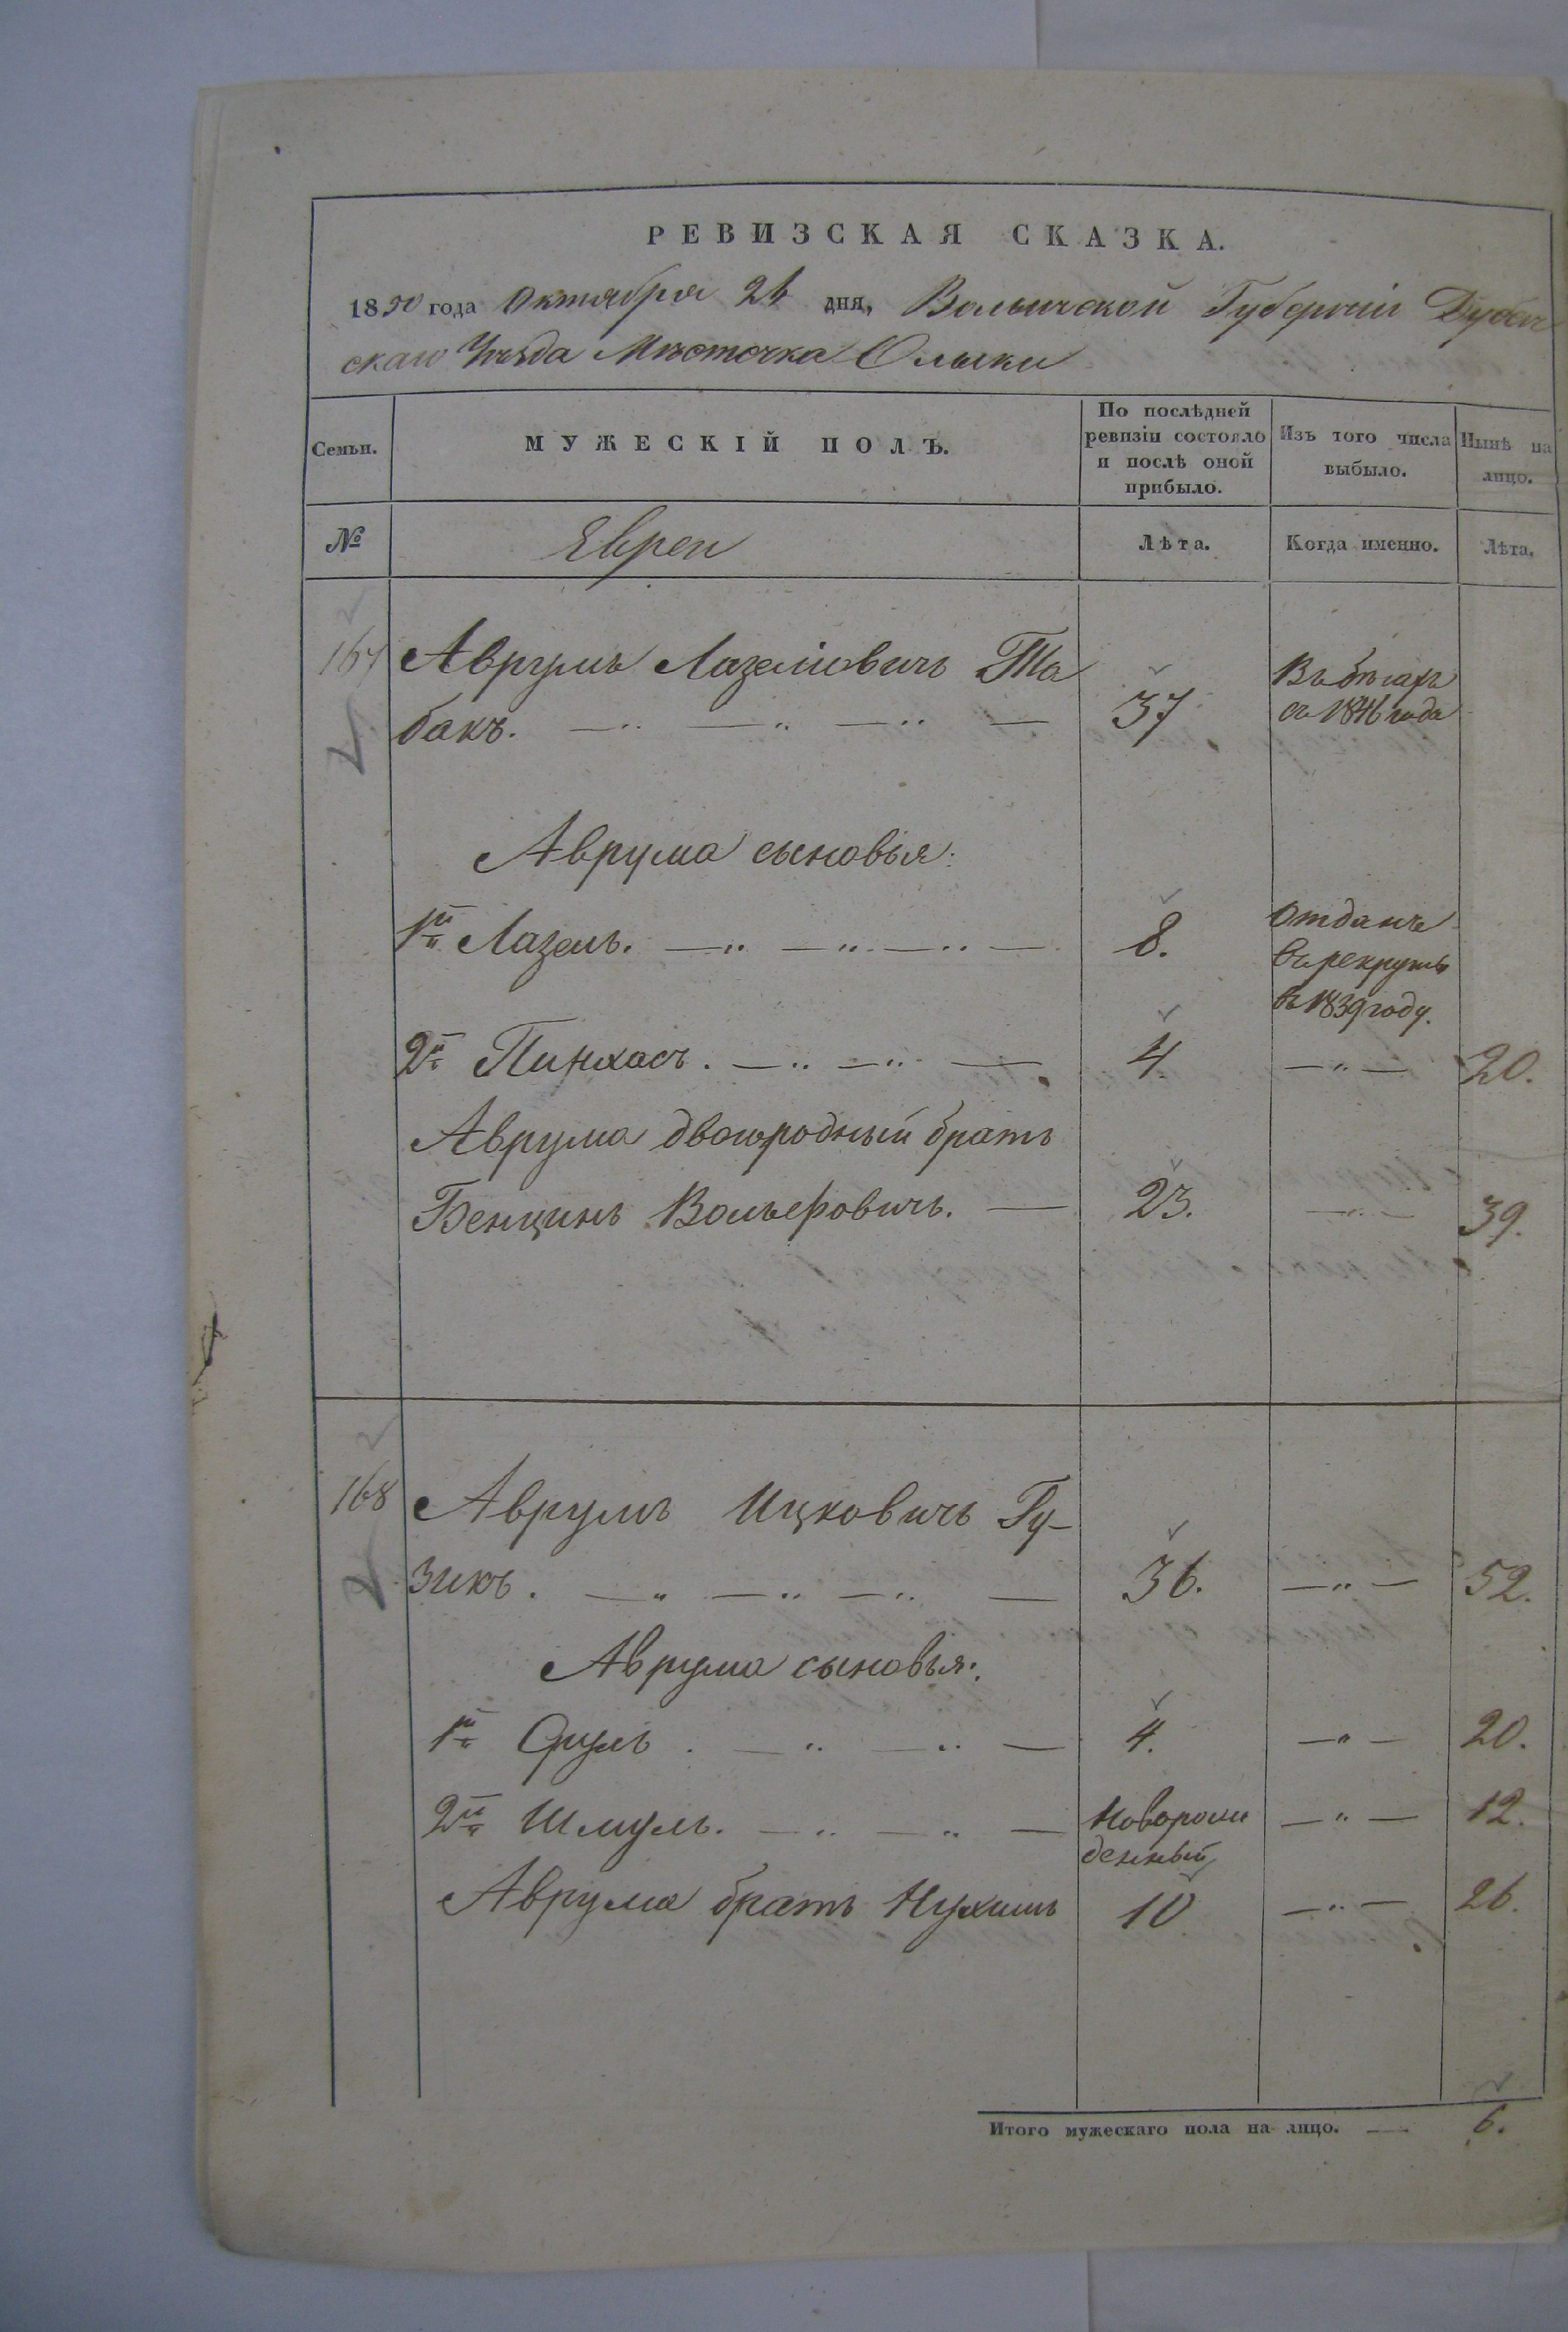 РЕВИЗСКАЯ СКАЗКА.
1850 года Октября 26 дня, Волынской Губерніи Дубен
скаго Уѣзда Мѣсточка Олыки
Семьи.
МУЖЕСКІЙ ПОЛЪ.
По послѣдней
ревизіи состояло
и послѣ оной
прибыло.
Изъ того числа
выбыло.
Нынѣ на
лицо.
№
Евреи
Лѣта.
Когда именно.
Лѣта.
167 Аврумъ Лазелиовичъ Та
бакъ. — „ — „ — „ — 37
Въ бѣгахъ
съ 1846 года
Аврума сыновья:
1й Лазель. — „ — „ — „ — 8.
отданъ
въ рекруты
въ 1839 году.
2й Пинхасъ. — „ — „ — 4. — „ — 20.
Аврума двоюродный братъ
Бенционъ Вольфовичъ. — 23. — „ — 39.
168 Аврумъ Ицковичъ Гу-
зикъ. — „ — „ — „ — 36. — „ — 52.
Аврума сыновья:
1й Сруль. — „ — „ — 4. — „ — 20.
2й Шмуль. — „ — „ — Новорож
денный — „ — 12.
Аврума братъ Нухимъ 10 — „ — 26.
Итого мужескаго пола на лицо. — 6.